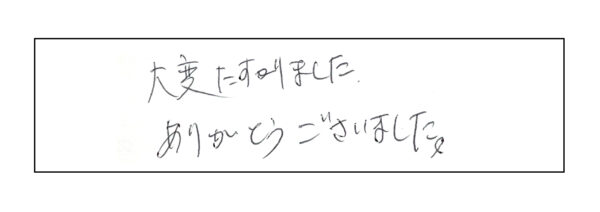 大変たすかりました.
ありがとうございました。